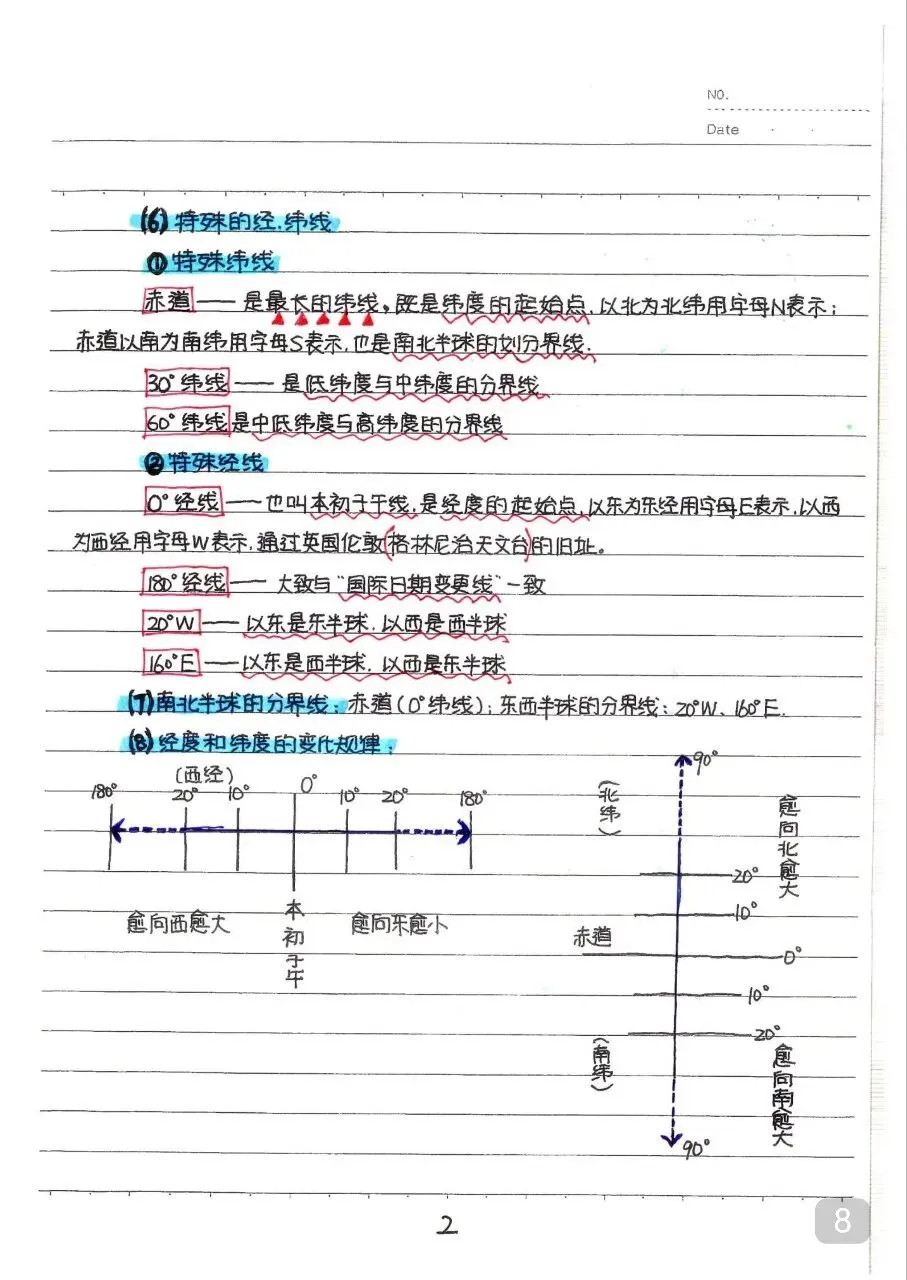 NO.
Date
(6)特殊的经.纬线
①特殊纬线
赤道——是最长的纬线。既是纬度的起始点,以北为北纬用字母N表示;
赤道以南为南纬用字母S表示,也是南北半球的划分界线.
30°纬线——是低纬度与中纬度的分界线
60°纬线是中低纬度与高纬度的分界线
②特殊经线
0°经线——也叫本初子午线,是经度的起始点,以东为东经用字母E表示,以西
为西经用字母W表示,通过英国伦敦(格林尼治天文台)的旧址。
180°经线——大致与"国际日期变更线"一致
20°W——以东是东半球.以西是西半球
160°E——以东是西半球.以西是东半球
(7)南北半球的分界线:赤道(0°纬线);东西半球的分界线:20°W、160°E.
(8)经度和纬度的变化规律:
(西经)
180° 20° 10° 0° 10° 20° 180°
愈向西愈大
本初子午
愈向东愈小
90°
(北纬)
愈向北愈大
20°
10°
赤道
0°
10°
20°
(南纬)
愈向南愈大
90°
2
8